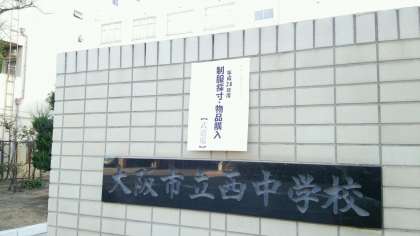 平成28年度
制服採寸・物品購入
【武道場】
大阪市立西中学校